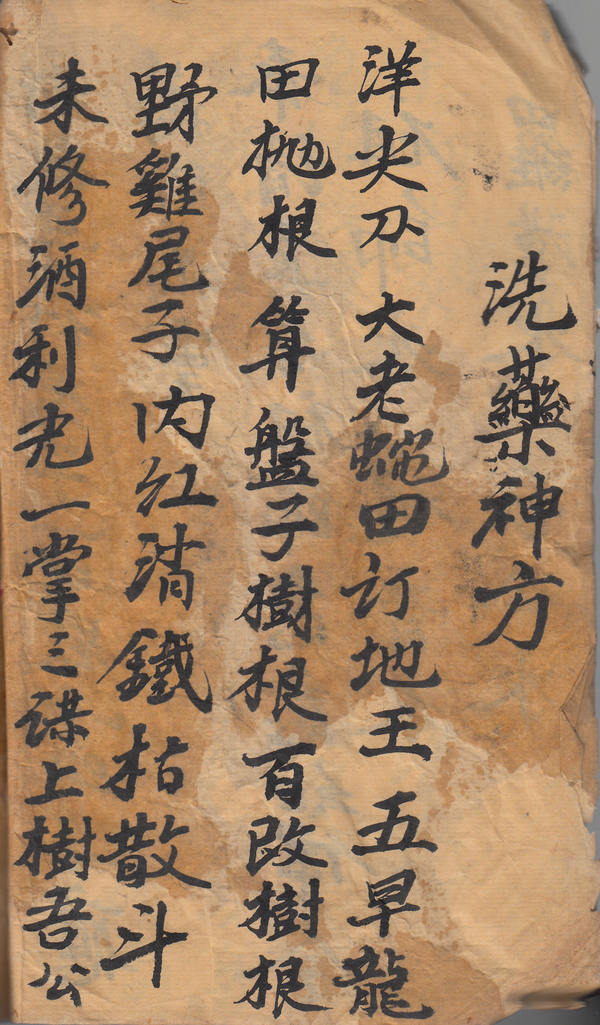 洗藥神方
洋尖刀 大老蛇田訂地王 五早龍
田抛根 算盤子樹根 百改樹根
野雞尾子内紅消鐵枯散斗
未修酒利光一掌三謀上樹吾公